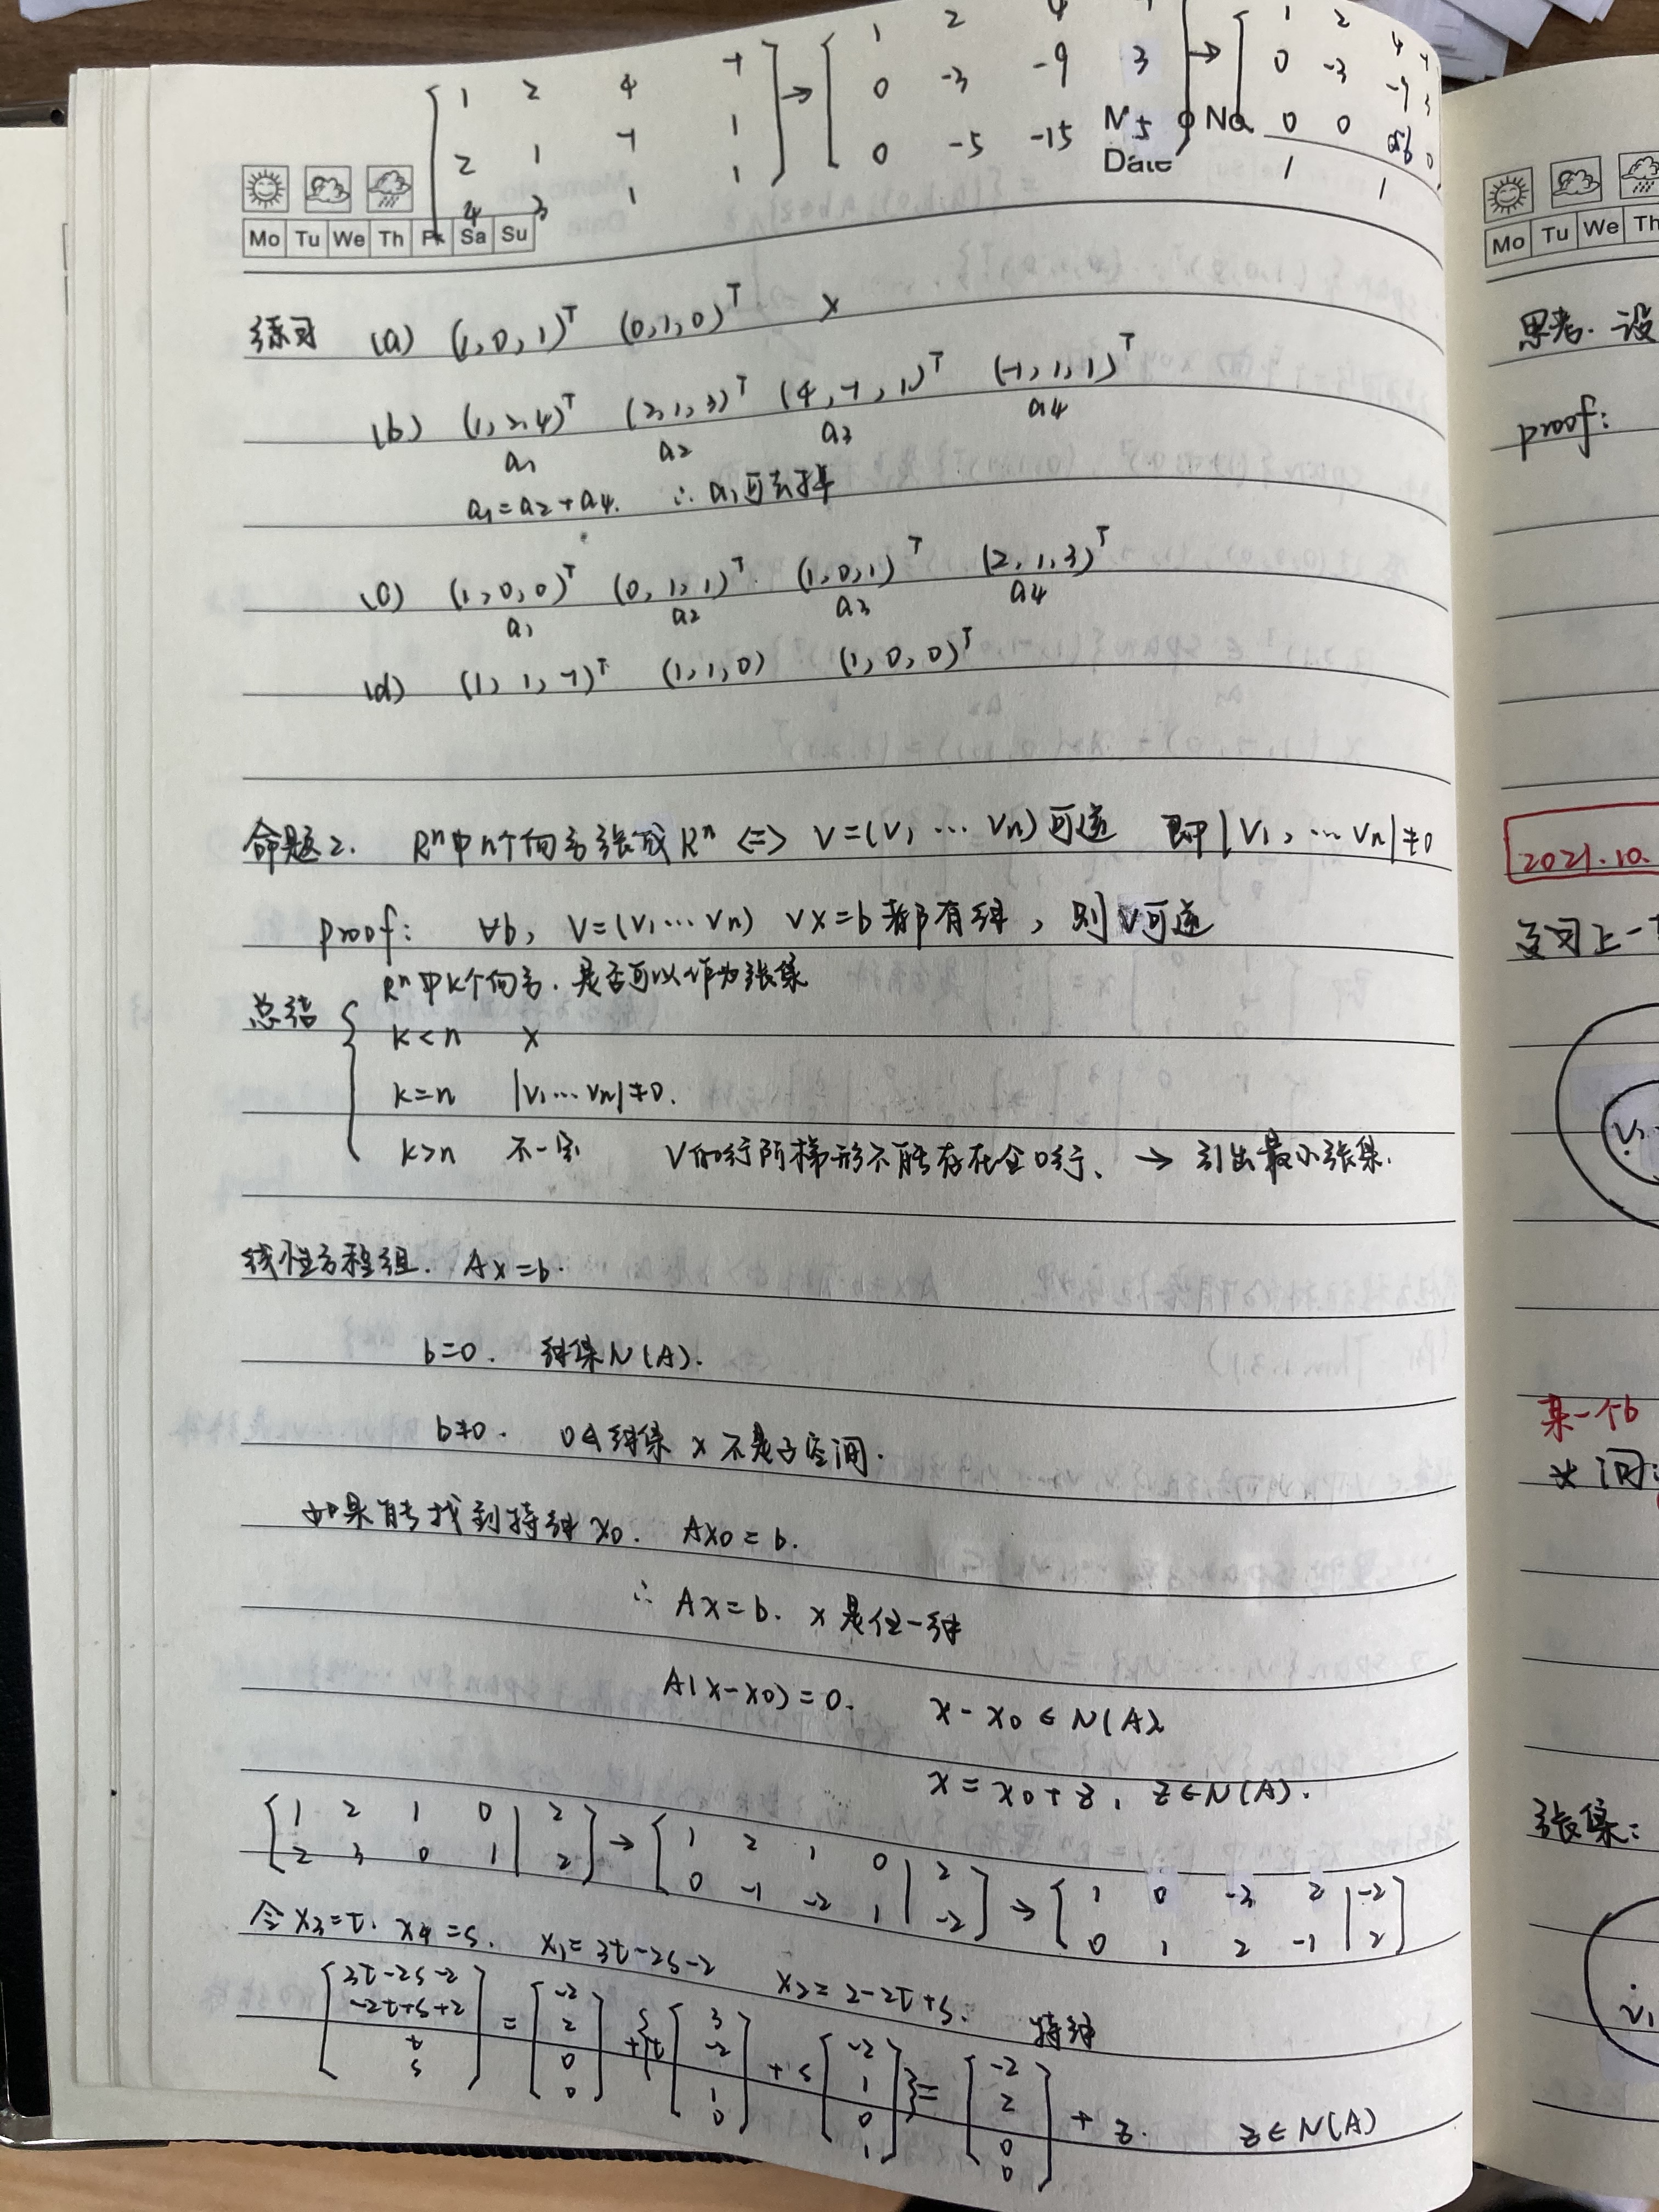 [1 2 4 -1
2 1 -1 1
4 3 1 1] → [1 2 4
0 -3 -9 3
0 -5 -15 5] → [1 2 4 -1
0 -3 -9 3
0 0 0 0]
No.
Date
Mo Tu We Th Fr Sa Su
练习 (a) (1,0,1)ᵀ (0,1,0)ᵀ ×
(b) (1,2,4)ᵀ (2,1,3)ᵀ (4,-1,1)ᵀ (-1,1,1)ᵀ
a₁ a₂ a₃ a₄
a₁=a₂+a₄. ∴ a₁可去掉
(c) (1,0,0)ᵀ (0,1,1)ᵀ (1,0,1)ᵀ (2,1,3)ᵀ
a₁ a₂ a₃ a₄
(d) (1,1,-1)ᵀ (1,1,0) (1,0,0)ᵀ
命题2. Rⁿ中n个向量张成Rⁿ ⇔ V=(v₁ … vₙ)可逆 即|v₁, … vₙ|≠0
proof: ∀b, V=(v₁ … vₙ) Vx=b都有解, 则V可逆
Rⁿ中k个向量. 是否可以作为张集
总结 { k<n ×
k=n |v₁ … vₙ|≠0.
k>n 不一定 V的行阶梯形不能存在全0行、 → 引出最小张集.
线性方程组. Ax=b.
b=0. 解集N(A).
b≠0. 0∉解集 × 不是子空间.
如果能找到特解x₀. Ax₀=b.
∴ Ax=b. x是任一解
A(x-x₀)=0. x-x₀∈N(A)
x=x₀+z, z∈N(A).
[1 2 1 0 | 2
2 3 0 1 | 2] → [1 2 1 0 | 2
0 -1 -2 1 | -2] → [1 0 -3 2 | -2
0 1 2 -1 | 2]
令x₃=t. x₄=s. x₁=3t-2s-2 x₂=2-2t+s. 特解
[3t-2s-2
-2t+s+2
t
s] = [-2
2
0
0] + {t[3
-2
1
0] + s[-2
1
0
1]} = [-2
2
0
0] + z. z∈N(A)
Mo Tu We Th
思考. 设
proof:
2021.10.
复习上一
v₁
某一个b
张集:
v₁